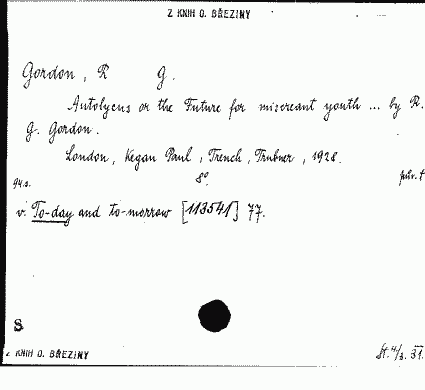 Z KNIH O. BŘEZINY
Gordon, R G.
Autolycus or the Future for miscreant youth ... by R.
G. Gordon.
London, Kegan Paul, Trench, Trubner, 1928.
94 s. 8° pův. f
v. To-day and to-morrow [113541] 77.
8
Z KNIH O. BŘEZINY
St. 4/3. 31.